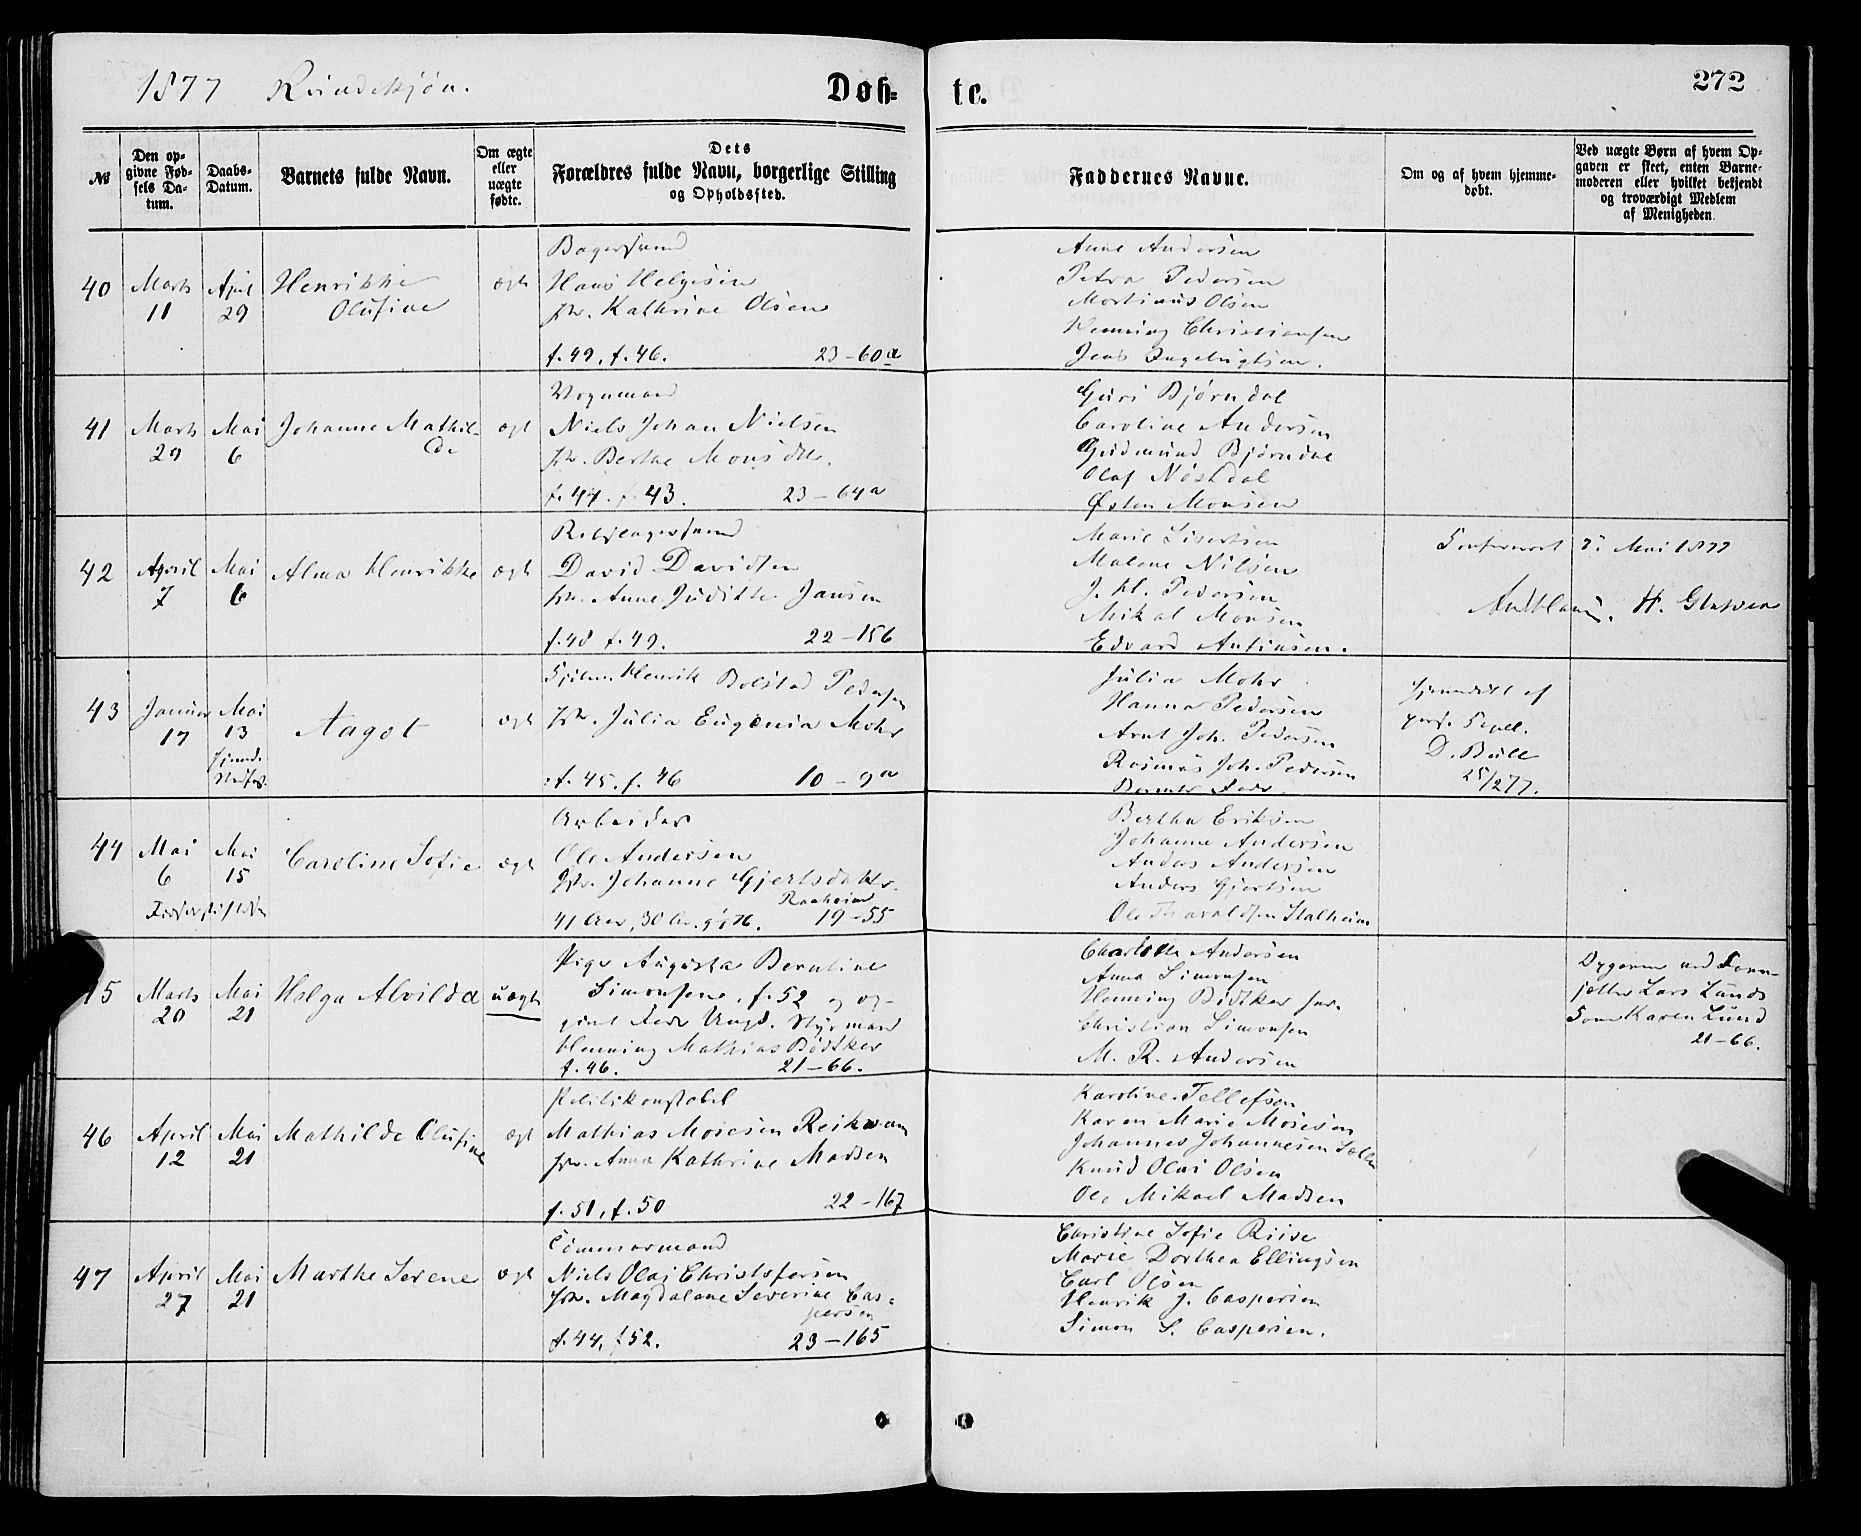 1877 Kvindekjøn.
Døb-
te.
272
№
Den op-
givne Fød-
sels Da-
tum.
Daabs-
Datum.
Barnets fulde Navn.
Om ægte
eller
uægte
fødte.
Dets
Forældres fulde Navn, borgerlige Stilling
og Opholdssted.
Faddernes Navne.
Om og af hvem hjemme-
døbt.
Ved uægte Børn af hvem Op-
gaven er skeet, enten Barne-
moderen eller hvilket bekjendt
og troværdigt Medlem
af Menigheden.
40
Marts
11
April
29
Henrikke
Olufine
ægte
Bagersvend
Hans Helgesen
Kathrine Olsen
f. 49, f. 46.
23-60a
Anne Andersen
Petra Pedersen
Martinus Olsen
Henning Christiansen
Jens Ingebrigtsen.
41
Marts
29
Mai
6
Johanne Mathil-
de
ægt
Vognmand
Niels Johan Nielsen
Berthe Monsdtr.
f. 44. f. 43.
23-64a
Guri Bjørndal
Caroline Andersen
Gudmund Bjørndal
Olaf
Østen Monsen
42
April
7
Mai
6
Alma Henrikke
ægt
Rebslagersvend
David Davidsen
Anne Judithe Jansen
f. 48 f. 49.
22-156
Marie Sivertsen
Malene Nilsen
J. Kl. Pedersen
Mikal Monsen
Edvard Antonsen.
Mai 1877
H.
43
Januar
17
Mai
13
Aagot
ægt
Henrik Bolstad Pedersen
Julia Eugenia Mohr
f. 45. f. 46
10-9a
Julia Mohr
Hanna Pedersen
Arnt Joh. Pedersen
Rasmus Joh. Pedersen
Barnets Fader
hjemmedøbt af
pers. Capel.
D. Bull
25/2 77.
44
Mai
6
Mai
15
Caroline Sofie
ægt
Arbeider
Ole Andersen
Johanne Gjertsdatter.
19-55
Bertha Eriksen
Johanne Andersen
Anders Andersen
Anders Gjertsen
Ole Haraldsen Stalheim
45
Marts
20
Mai
21
Helga Alvilda
uægte
Pige Augusta Berntine
Simonsen, f. 52 og op-
givet Fader Ungk. Styrmand
Henning Mathias Bødtker
f. 46.
21-66.
Charlotte Andersen
Anna Simonsen
Henning Bødtker
Christian Simonsen
M. R. Andersen
Lars Lunds
Karen Lund
21-66.
46
April
12
Mai
21
Mathilde Olufine
ægt
Politikonstabel
Mathias Moiesen Reikvam
Anna Kathrine Madsen
f. 51, f. 50
22-167
Karoline Tellefsen
Karen Marie Moiesen
Johannes Johannesen
Knud Olai Olsen
Ole Mikael Madsen
47
April
27
Mai
21
Marthe Serene
ægt
Tømmermand
Niels Olai Christofersen
Magdalene Severine Cas-
persen
f. 44, f 52.
23-165
Christine Sofie Riise
Marie Dorthea Ellingsen
Carl Olsen
Henrik J. Caspersen
Simon S. Caspersen.